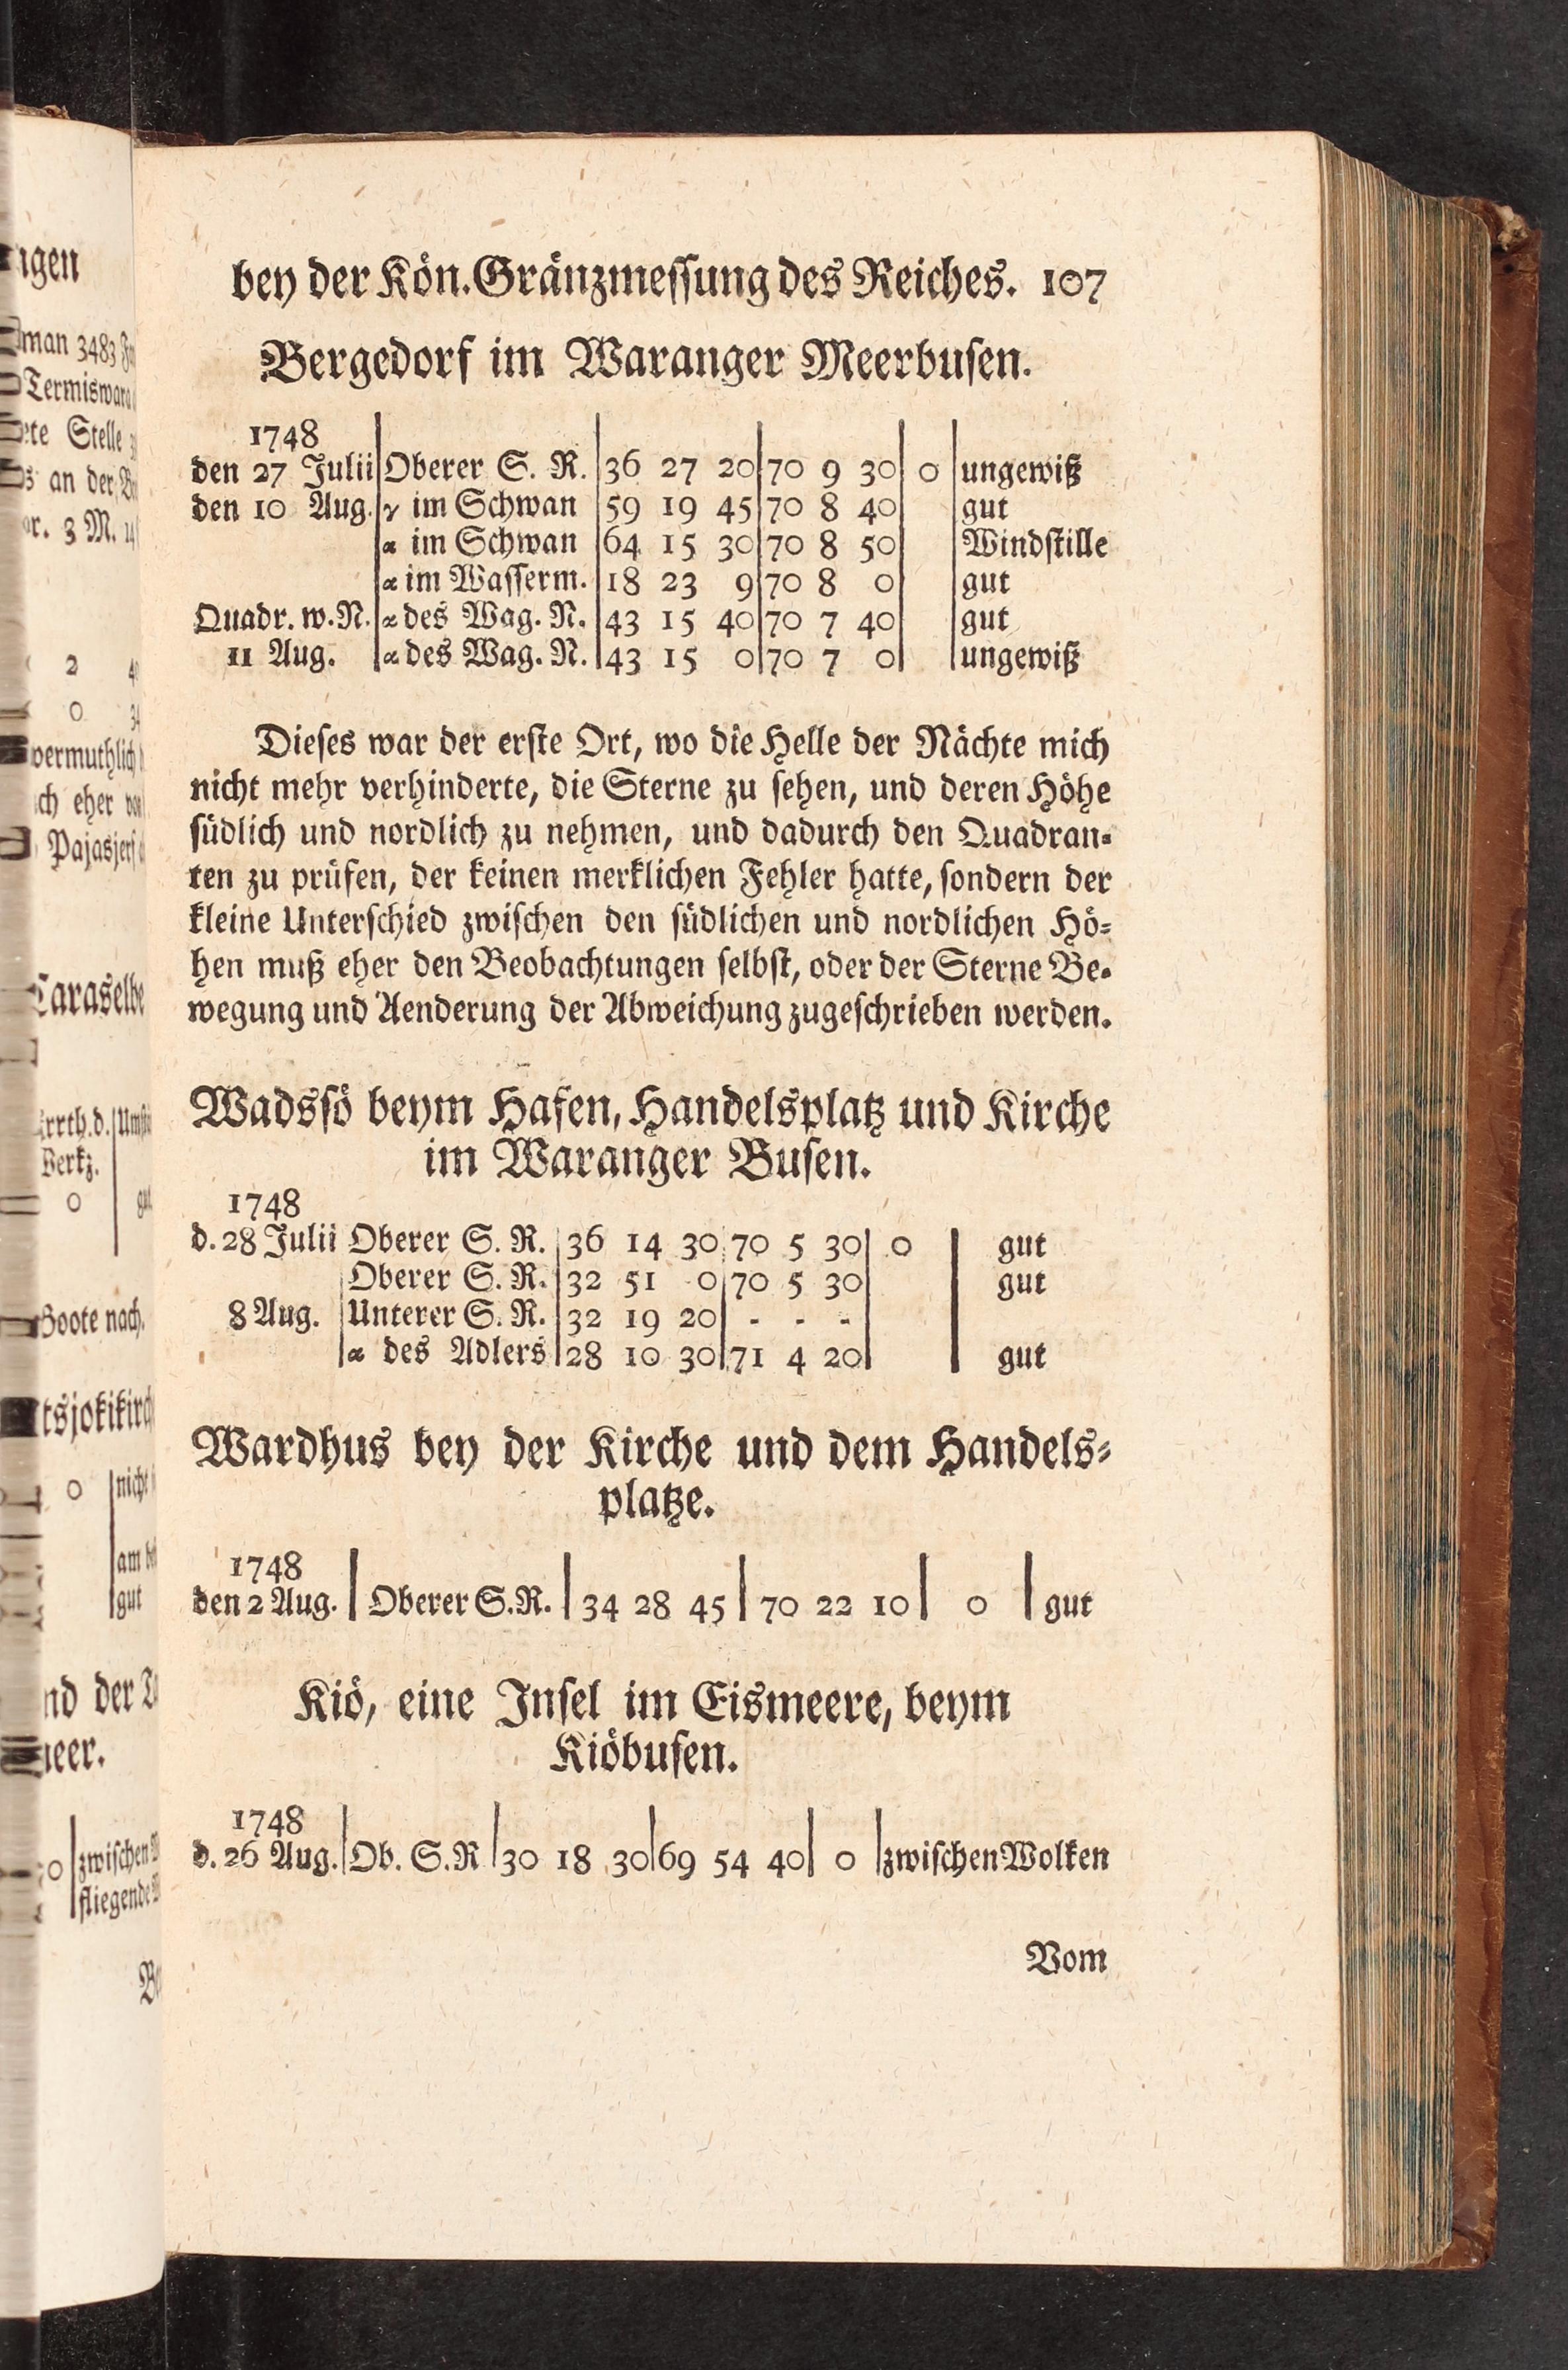 bey der Kön. Gränzmessung des Reiches. 107
Bergedorf im Waranger Meerbusen.
1748
den 27 Julii Oberer S. R. 36 27 20 70 9 30 0 ungewiß
den 10 Aug. γ im Schwan 59 19 45 70 8 40 gut
α im Schwan 64 15 30 70 8 50 Windstille
α im Wasserm. 18 23 9 70 8 0 gut
Quadr. w. N. α des Wag. N. 43 15 40 70 7 40 gut
11 Aug. α des Wag. N. 43 15 0 70 7 0 ungewiß
Dieses war der erste Ort, wo die Helle der Nächte mich
nicht mehr verhinderte, die Sterne zu sehen, und deren Höhe
südlich und nordlich zu nehmen, und dadurch den Quadran-
ten zu prüfen, der keinen merklichen Fehler hatte, sondern der
kleine Unterschied zwischen den südlichen und nordlichen Hö-
hen muß eher den Beobachtungen selbst, oder der Sterne Be-
wegung und Aenderung der Abweichung zugeschrieben werden.
Wadssö beym Hafen, Handelsplatz und Kirche
im Waranger Busen.
1748
d. 28 Julii Oberer S. R. 36 14 30 70 5 30 0 gut
Oberer S. R. 32 51 0 70 5 30 gut
8 Aug. Unterer S. R. 32 19 20 - - -
α des Adlers 28 10 30 71 4 20 gut
Wardhus bey der Kirche und dem Handels-
platze.
1748
den 2 Aug. Oberer S. R. 34 28 45 70 22 10 0 gut
Kiö, eine Insel im Eismeere, beym
Kiöbusen.
1748
d. 26 Aug. Ob. S. R 30 18 30 69 54 40 0 zwischen Wolken
Vom